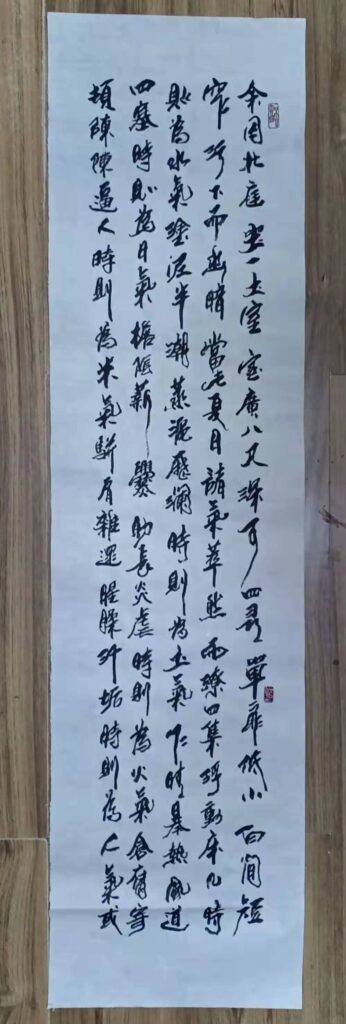 余囚北庭坐一土室室廣八尺深可四尋單扉低小白間短
窄污下而幽暗當此夏日諸氣萃然雨潦四集浮動床几時
則為水氣塗泥半潮蒸漚歷瀾時則為土氣乍晴暴熱風道
四塞時則為日氣檐陰薪爨助長炎虐時則為火氣倉腐寄
頓陳陳逼人時則為米氣駢肩雜遝腥臊汗垢時則為人氣或